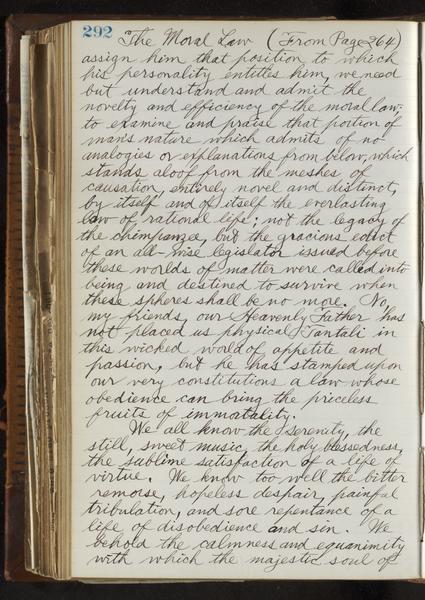 292
The Moral Law (From Page 264)
assign him that position to which
his personality entitles him, we need
but understand and admit the
novelty and efficiency of the moral law;
to examine and praise that portion of
man's nature which admits of no
analogies or explanations from below, which
stands aloof from the meshes of
causation, entirely novel and distinct,
by itself and of itself the everlasting
law of rational life; not the legacy of
the chimpanzee, but the gracious edict
of an all-wise legislator issued before
these worlds of matter were called into
being and destined to survive when
these spheres shall be no more. No,
my friends, our Heavenly Father has
not placed us physical Tantali in
this wicked world of appetite and
passion, but he has stamped upon
our very constitutions a law whose
obedience can bring the priceless
fruits of immatality.
We all know the serenity, the
still, sweet music, the holy blessedness,
the sublime satisfaction of a life of
virtue. We know too well the bitter
remorse, hopeless despair, painful
tribulation, and sore repentance of a
life of disobedience and sin. We
behold the calmness and equanimity
with which the majestic soul of